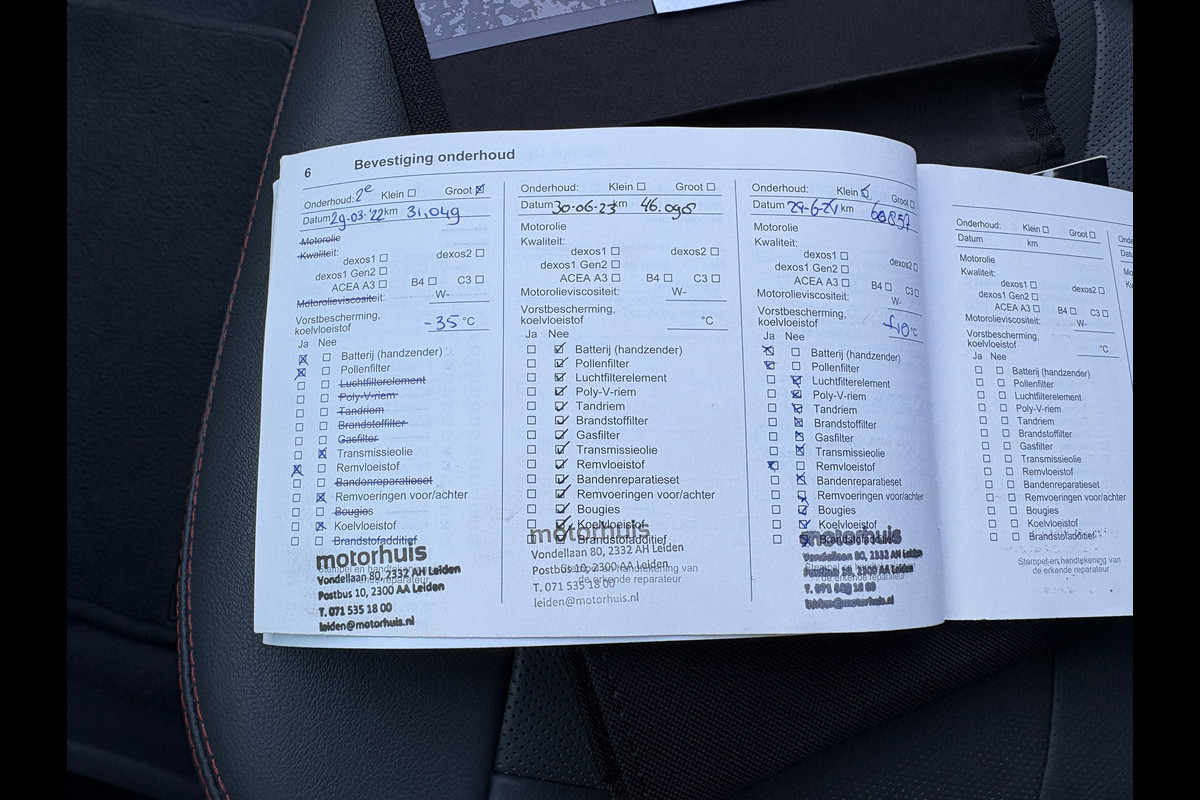 6 Bevestiging onderhoud
Onderhoud: 2e Klein Groot
Datum 29-03-'22 km 31.049
Motorolie
Kwaliteit:
dexos1 dexos2
dexos1 Gen2
ACEA A3 B4 C3
Motorolieviscositeit: W-
Vorstbescherming,
koelvloeistof -35 °C
Ja Nee
Batterij (handzender)
Pollenfilter
Luchtfilterelement
Poly-V-riem
Tandriem
Brandstoffilter
Gasfilter
Transmissieolie
Remvloeistof
Bandenreparatieset
Remvoeringen voor/achter
Bougies
Koelvloeistof
Brandstofadditief
motorhuis
Stempel en handtekening van
de erkende reparateur
Vondellaan 80, 2332 AH Leiden
Postbus 10, 2300 AA Leiden
T. 071 535 18 00
leiden@motorhuis.nl
Onderhoud: Klein Groot
Datum 30-06-23 km 46.098
Motorolie
Kwaliteit:
dexos1 dexos2
dexos1 Gen2
ACEA A3 B4 C3
Motorolieviscositeit: W-
Vorstbescherming,
koelvloeistof °C
Ja Nee
Batterij (handzender)
Pollenfilter
Luchtfilterelement
Poly-V-riem
Tandriem
Brandstoffilter
Gasfilter
Transmissieolie
Remvloeistof
Bandenreparatieset
Remvoeringen voor/achter
Bougies
Koelvloeistof
Brandstofadditief
motorhuis
Vondellaan 80, 2332 AH Leiden
Stempel en handtekening van
de erkende reparateur
Postbus 10, 2300 AA Leiden
T. 071 535 18 00
leiden@motorhuis.nl
Onderhoud: Klein Groot
Datum km 60857
Motorolie
Kwaliteit:
dexos1 dexos2
dexos1 Gen2
ACEA A3 B4 C3
Motorolieviscositeit: W-
Vorstbescherming,
koelvloeistof °C
Ja Nee
Batterij (handzender)
Pollenfilter
Luchtfilterelement
Poly-V-riem
Tandriem
Brandstoffilter
Gasfilter
Transmissieolie
Remvloeistof
Bandenreparatieset
Remvoeringen voor/achter
Bougies
Koelvloeistof
Brandstofadditief
motorhuis
Vondellaan 80, 2332 AH Leiden
Postbus 10, 2300 AA Leiden
de erkende reparateur
leiden@motorhuis.nl
Onderhoud: Klein Groot
Datum km
Motorolie
Kwaliteit:
dexos1 dexos2
dexos1 Gen2
ACEA A3 B4 C3
Motorolieviscositeit: W-
Vorstbescherming,
koelvloeistof °C
Ja Nee
Batterij (handzender)
Pollenfilter
Luchtfilterelement
Poly-V-riem
Tandriem
Brandstoffilter
Gasfilter
Transmissieolie
Remvloeistof
Bandenreparatieset
Remvoeringen voor/achter
Bougies
Koelvloeistof
Brandstofadditief
Stempel en handtekening van
de erkende reparateur